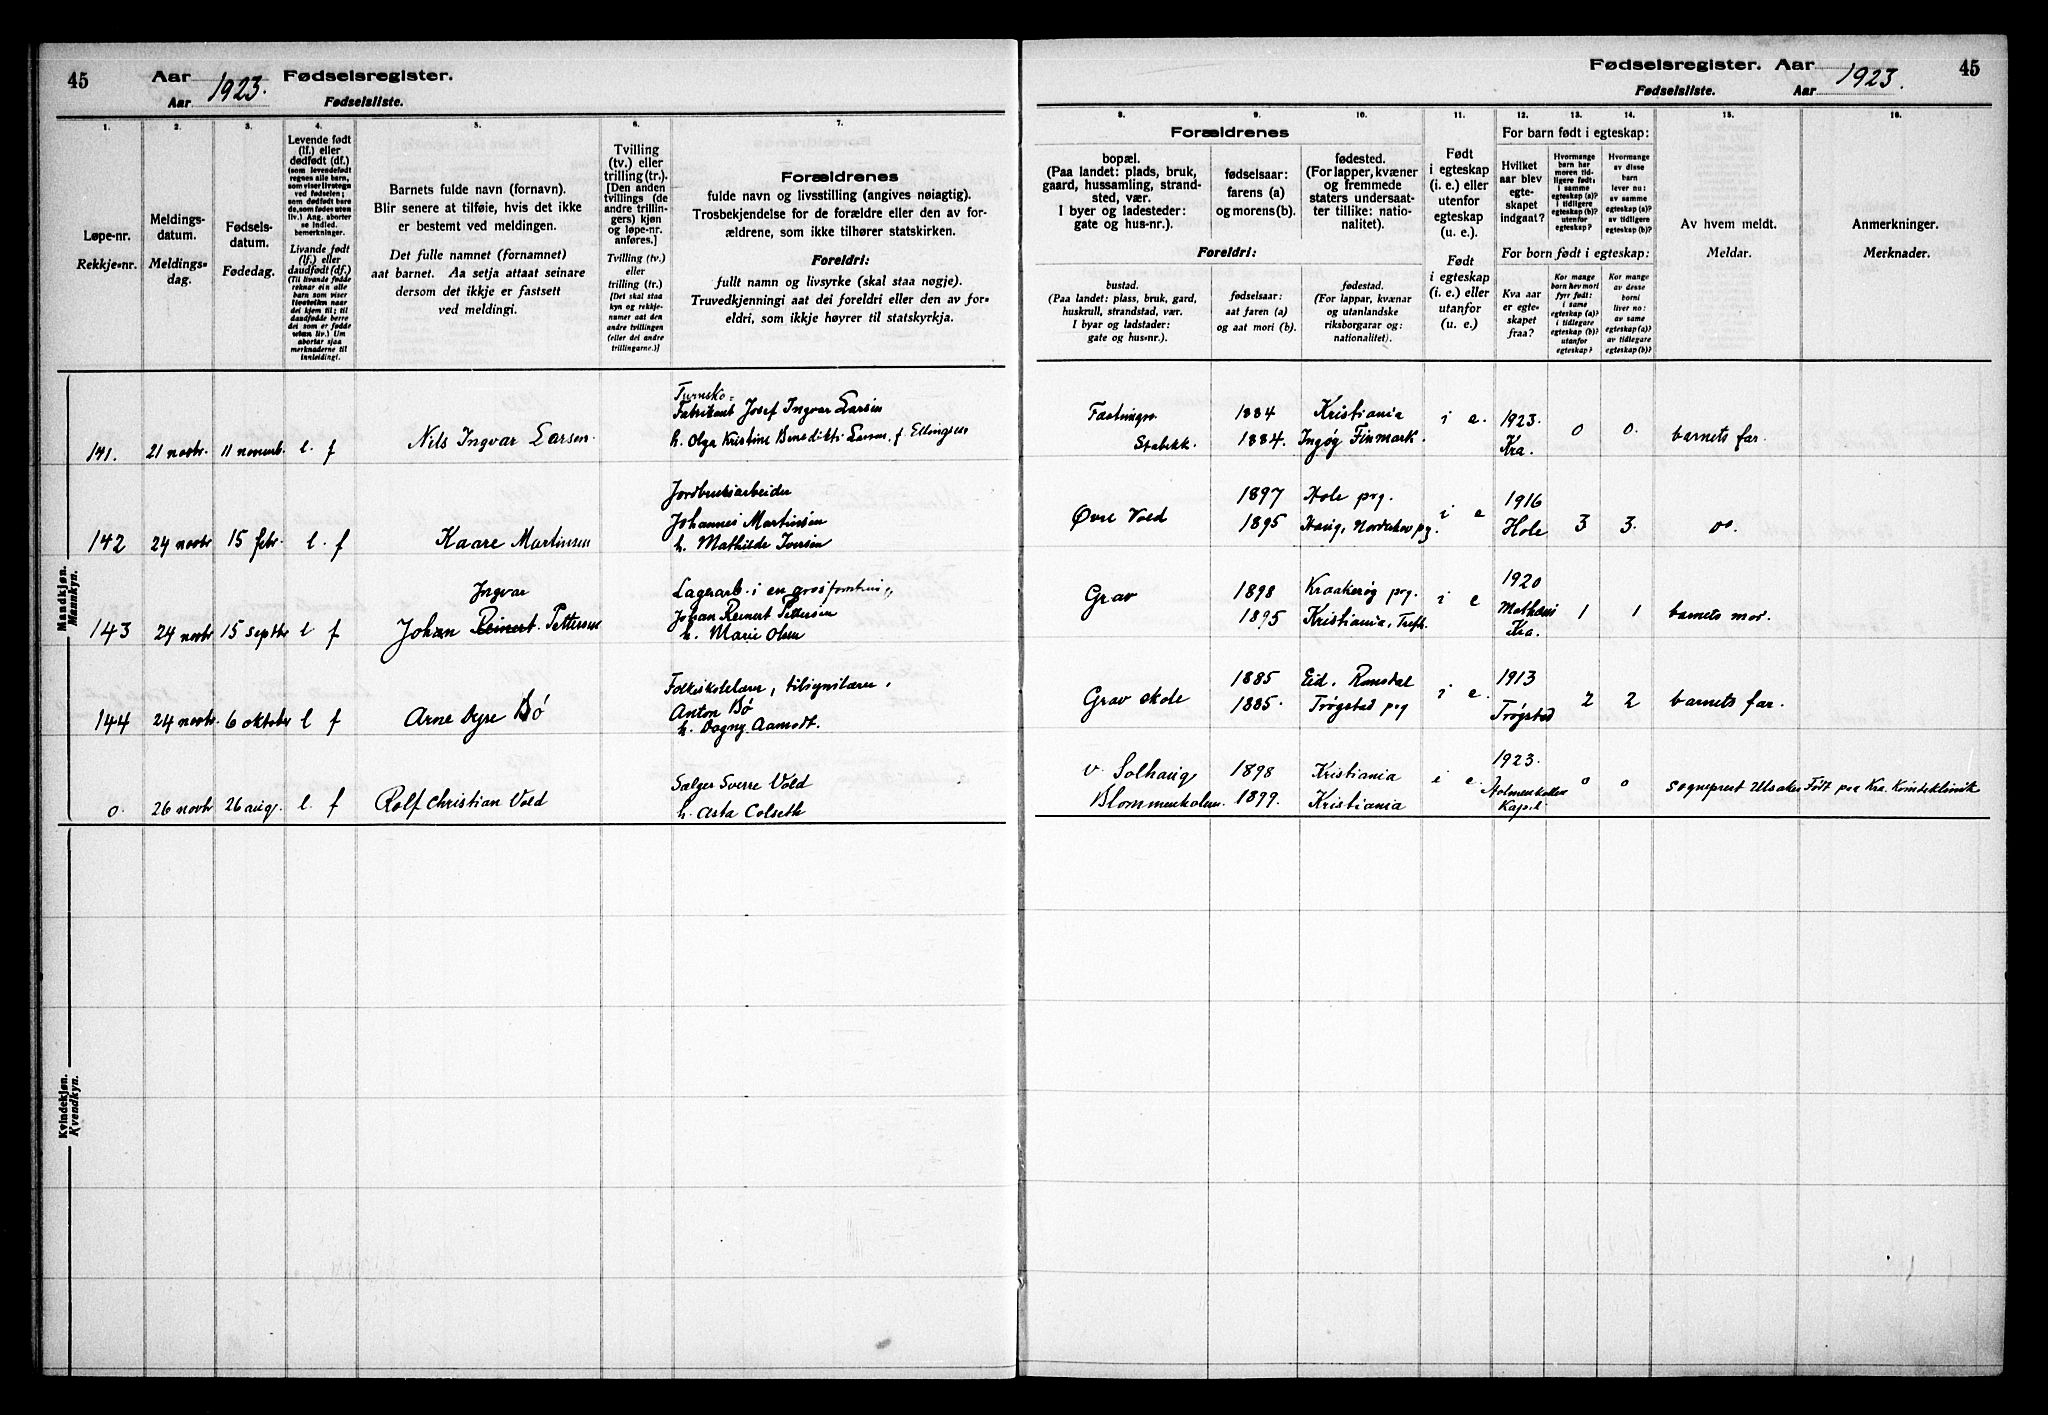 45 Aar 1923. Fødselsregister.
Aar Fødselsliste.
1. 2. 3. 4. 5. 6. 7.
Løpe-nr.
Rekkje-nr.
Meldings-
datum.
Meldings-
dag.
Fødsels-
datum.
Fødedag.
Levende født
(lf.) eller
dødfødt (df.)
Livande født
(lf.) eller
daudfødt (df.)
Barnets fulde navn (fornavn).
Blir senere at tilføie, hvis det ikke
er bestemt ved meldingen.
Det fulle namnet (fornamnet)
aat barnet. Aa setja attaat seinare
dersom det ikkje er fastsett
ved meldingi.
Tvilling
(tv.) eller
trilling (tr.).
[Den anden
tvillings (de
andre trillin-
gers) kjøn
og løpe-nr.
anføres.]
Tvilling (tv.)
eller
trilling (tr.)
[Det skal staa
kyn og rekkje-
numer aat den
andre tvillingen
(eller dei andre
trillingarne.)]
Forældrenes
fulde navn og livsstilling (angives nøiagtig).
Trosbekjendelse for de forældre eller den av for-
ældrene, som ikke tilhører statskirken.
Foreldri:
fullt namn og livsyrke (skal staa nøgje).
Truvedkjenningi aat dei foreldri eller den av for-
eldri, som ikkje høyrer til statskyrkja.
Mandkjøn.
Mannkyn.
141. 21 novbr. 11 novemb. l. f Nils Ingvar Larsen.
Fabrikant Josef Ingvar Larsen
h. Olga Kristine Benedikti Larsen, f. Ellingsen
142 24 novbr 15 febr. l. f Kaare Martinsen
Jordbruksarbeider
Johannes Martinsen
h. Mathilde Iversen
143 24 novbr 15 septbr l f Ingvar
Johan Reinert Pettersen
Lagerarb. i en
Johan Reinert Pettersen
h. Marie Olsen
144 24 novbr. 6 oktobr l f Arne Dyre Bø
Folkeskolelærer,
Anton Bø
h. Dagny Aamodt.
0. 26 novbr 26 aug. l. f Rolf Christian Vold
Sælger Sverre Vold
h. Asta Colseth
Kvindekjøn.
Kvendkyn.
Fødselsregister. Aar 1923. 45
Fødselsliste. Aar
8. 9. 10. 11. 12. 13. 14. 15. 16.
Forældrenes
bopæl.
(Paa landet: plads, bruk,
gaard, hussamling, strand-
sted, vær.
I byer og ladesteder:
gate og hus-nr.).
fødselsaar:
farens (a)
og morens (b).
fødested.
(For lapper, kvæner
og fremmede
staters undersaat-
ter tillike: natio-
nalitet).
Foreldri:
bustad.
(Paa landet: plass, bruk, gard,
huskrull, strandstad, vær.
I byar og ladstader:
gate og hus-nr.).
fødselsaar:
aat faren (a)
og aat mori (b).
fødestad.
(For lappar, kvænar
og utanlandske
riksborgarar og:
nationalitet).
Født
i egteskap
(i. e.) eller
utenfor
egteskap
(u. e.).
Født
i egteskap
(i. e.) eller
utanfor
(u. e.).
For barn født i egteskap:
Hvilket
aar blev
egte-
skapet
indgaat?
Hvormange
barn har
moren tid-
ligere født:
i samme
egteskap (a)?
i tidligere
egteskap (b)?
utenfor
egteskap?
Hvormange
av disse
barn
lever nu:
av samme
egteskap (a)?
av tidligere
egteskap (b)?
For barn født i egteskap:
Kva aar
er egte-
skapet
fraa?
Kor mange
born hev mori
fyrr født:
i same
egteskap (a)?
i tidlegare
egteskap (b)?
utanfor
egteskap?
Kor mange
av desse
borni
liver no:
av same
egteskap (a)?
av tidlegare
egteskap (b)?
Av hvem meldt.
Meldar.
Anmerkninger.
Merknader.
Stabekk.
1884 Kristiania i e. 1923. 0 0. barnets far.
1884. Ingøy Finmark. Kra.
Øvre Vold 1897 Hole prg. i e 1916 3 3. oo.
1895 Haug, Norderhov pg. Hole
Grav 1898 Kraakerøy prg. i e 1920 1 1 barnets mor.
1895 Kristiania, Kra.
Grav skole 1885 Eid, Romsdal i e. 1913 2 2 barnets far.
1885. Trøgstad prg Trøgstad
v. Solhaug 1898 Kristiania i e. 1923. 0 0 sogneprest Født paa Kra. Kvindeklinik
Blommenholm. 1899. Kristiania Holmenkollen
Kapel